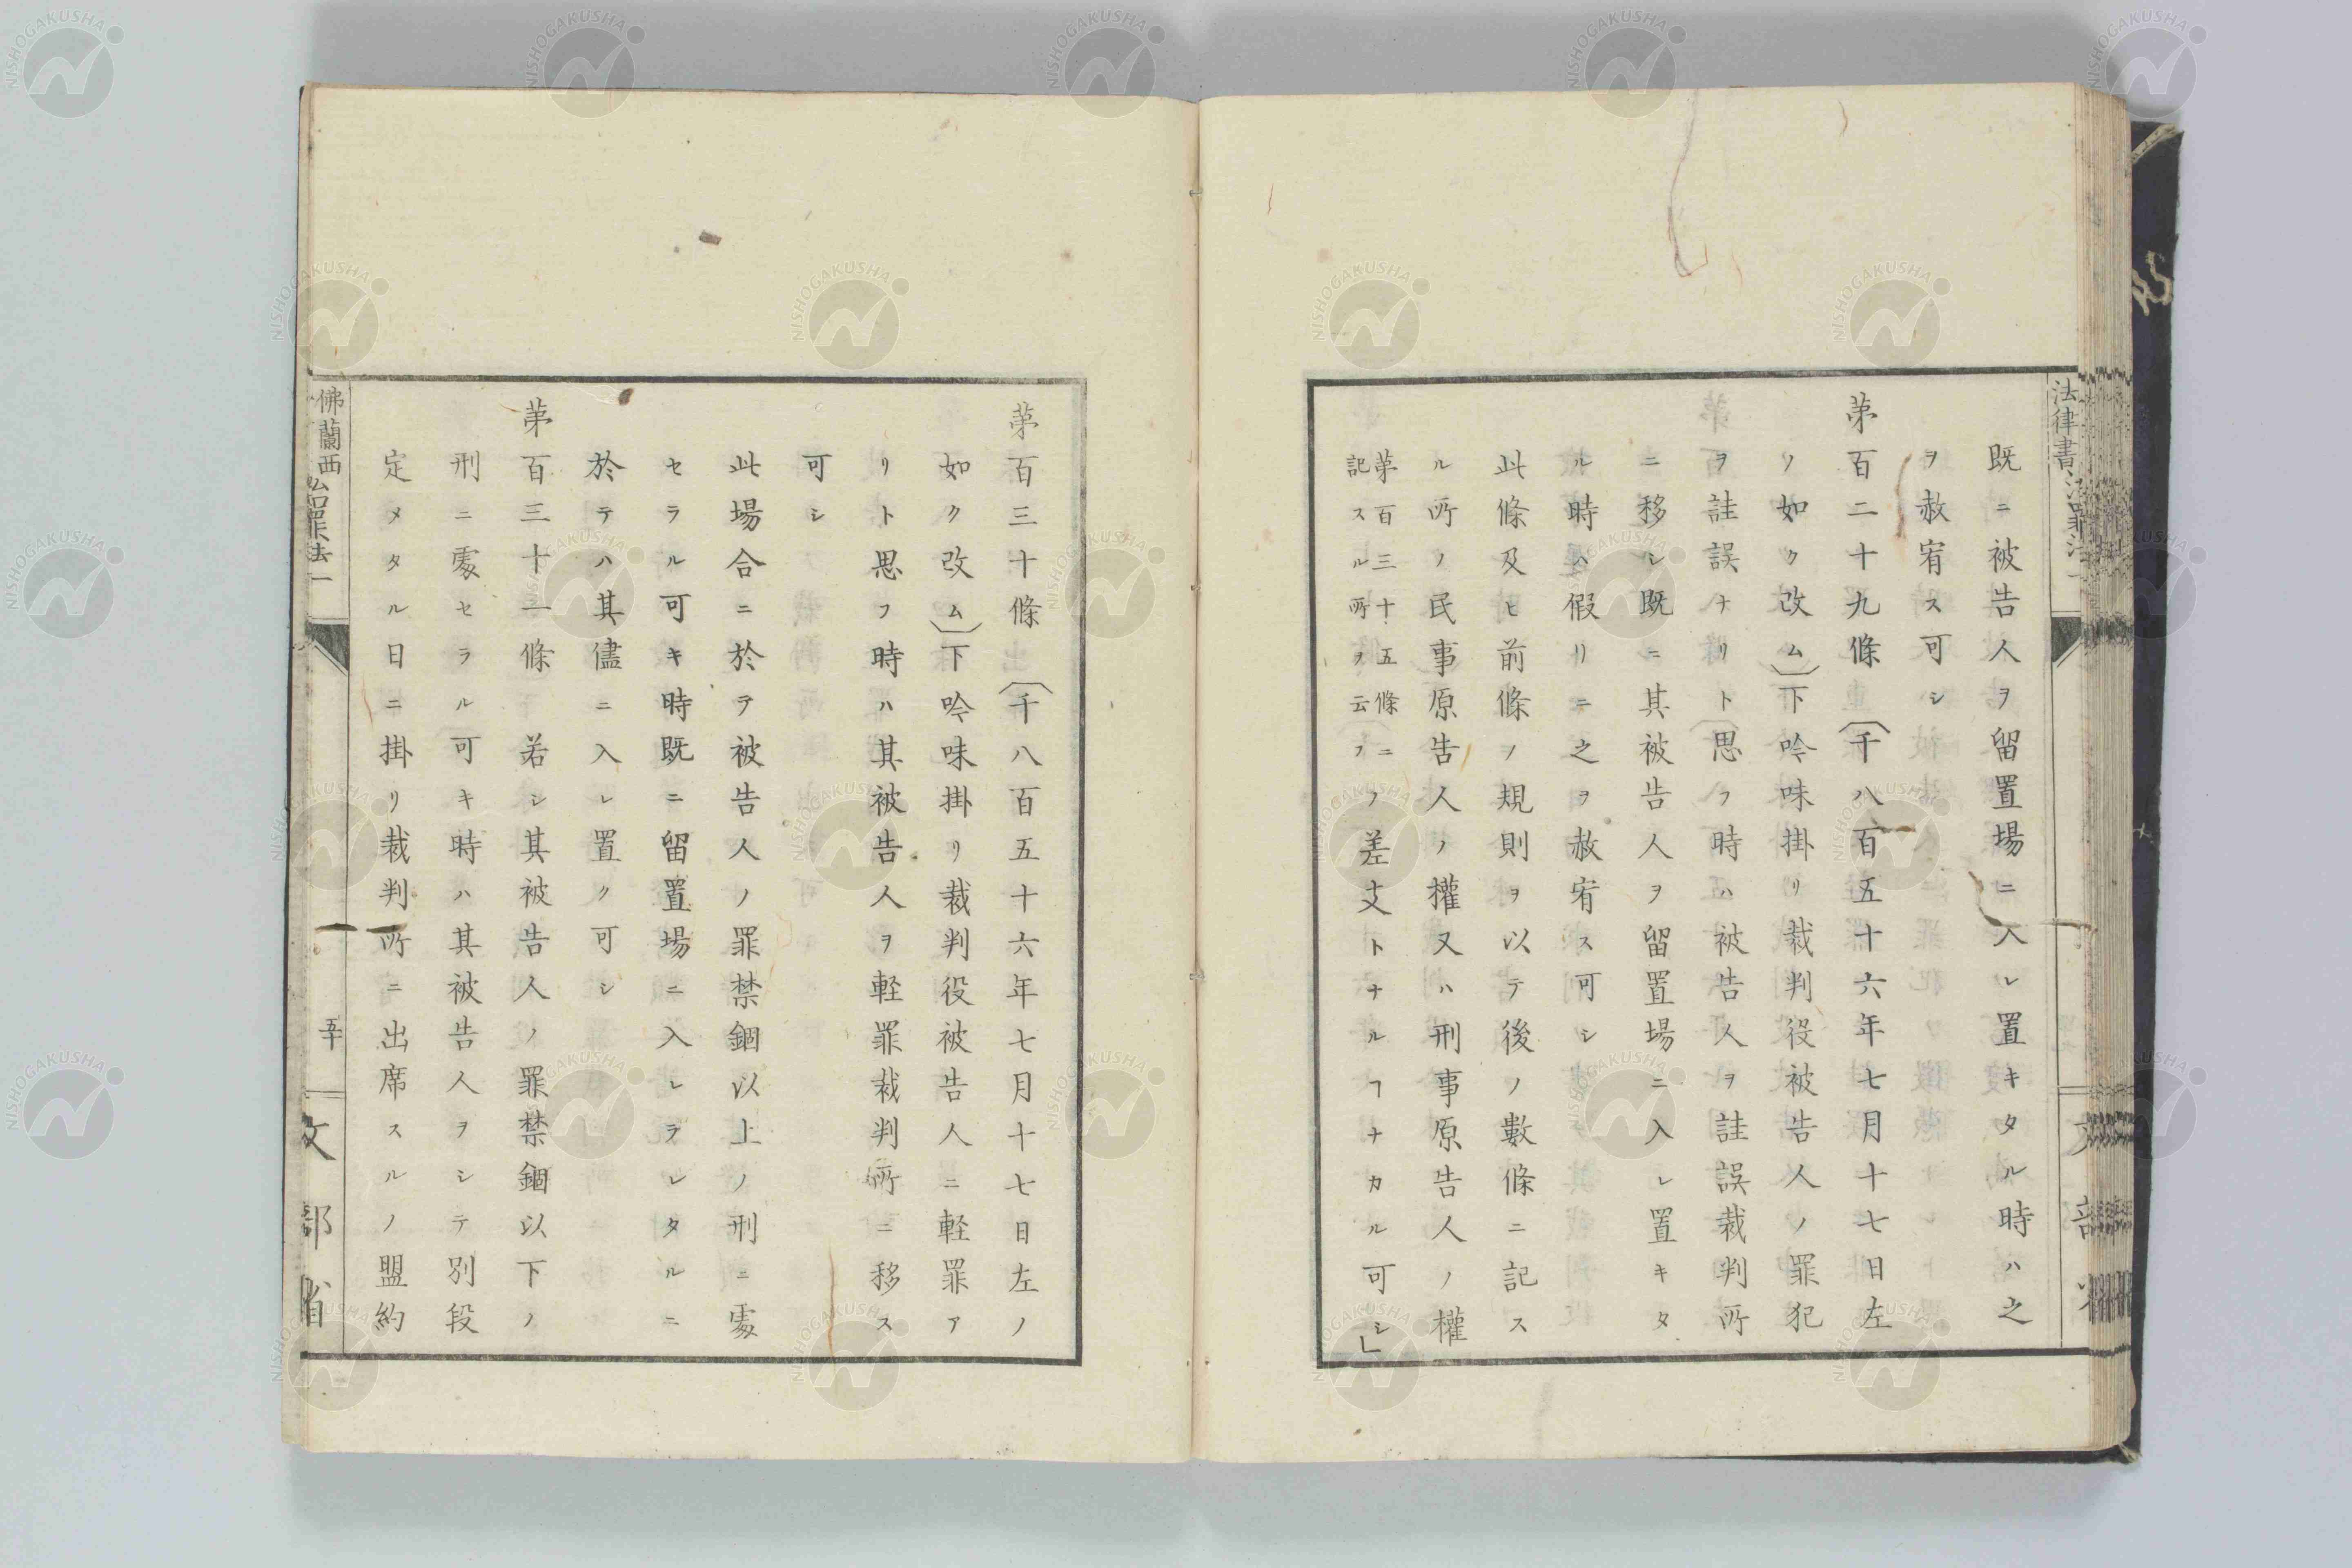 法律書治罪法一
既ニ被告人ヲ留置場ニ入レ置キタル時ハ之
ヲ赦宥ス可シ
苐百二十九條（千八百五十六年七月十七日左
ノ如ク改ム）下吟味掛リ裁判役被告人ノ罪犯
ヲ註誤ナリト思フ時ハ被告人ヲ註誤裁判所
ニ移シ既ニ其被告人ヲ留置場ニ入レ置キタ
ル時ハ假リニ之ヲ赦宥ス可シ
此條及ヒ前條ノ規則ヲ以テ後ノ數條ニ記ス
ル所ノ民事原告人ノ權又ハ刑事原告人ノ權
苐百三十五條ニ
記スル所ヲ云フ
ノ差支トナルヿナカル可シ」
文部省
苐百三十條（千八百五十六年七月十七日左ノ
如ク改ム）下吟味掛リ裁判役被告人ニ軽罪ア
リト思フ時ハ其被告人ヲ軽罪裁判所ニ移ス
可シ
此場合ニ於テ被告人ノ罪禁錮以上ノ刑ニ處
セラル可キ時既ニ留置場ニ入レラレタルニ
於テハ其儘ニ入レ置ク可シ
苐百三十一條　若シ其被告人ノ罪禁錮以下ノ
刑ニ處セラル可キ時ハ其被告人ヲシテ別段
定メタル日ニ掛リ裁判所ニ出席スルノ盟約
佛蘭西治罪法一
五十
文部省
NISHOGAKUSHA